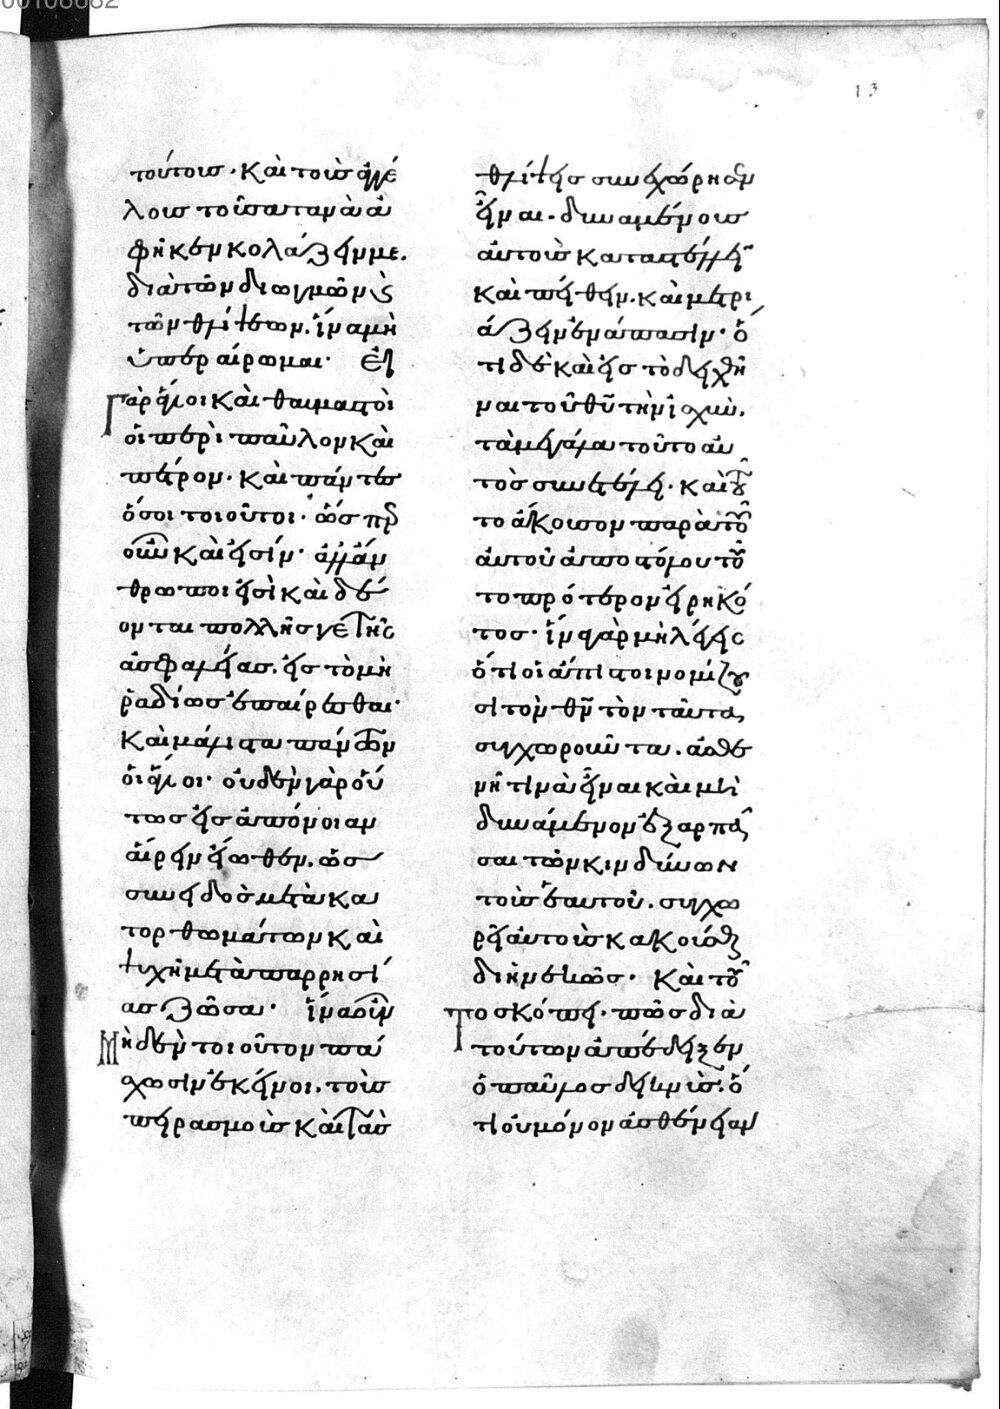 00108682
13
τούτοις· καὶ τοῖς ἀγγέ
λοις τοῦ σατανᾶ ἀ
φῆκεν κολαφίζειν με.
διὰ τῶν διωγμῶν καὶ
τῶν θλίψεων. ἵνα μὴ
ὑπεραίρωμαι· Εἰ
Γὰρ ἅγιοι καὶ θαυμαστοὶ
οἱ περὶ παῦλον καὶ
πέτρον· καὶ πάντες
ὅσοι τοιοῦτοι· ὥσπερ
οὖν καὶ εἰσίν· ἀλλ' ἄν
θρωποι εἰσὶ καὶ δέ
ονται πολλῆς γε τῆς
ἀσφαλείας. εἰς τὸ μὴ
ῥαδίως ἐπαίρεσθαι·
Καὶ μάλιστα πάντων
οἱ ἅγιοι· οὐδὲν γὰρ οὕ
τως εἰς ἀπόνοιαν
αἴρειν εἴωθεν. ὡς
συνειδὸς μετὰ κα
τορθωμάτων καὶ
ψυχὴ μετὰ παρρησί
ας ζῶσα· ἵνα οὖν
Μηδὲν τοιοῦτον πά
χωσιν ἐκεῖνοι. τοῖς
πειρασμοῖς καὶ τὰς
θλίψεις συνεχώρησεν
εἶναι. δυναμένοις
αὐτοὺς καταστέλλειν
καὶ πείθειν. καὶ μετρι
άζειν ἐν ἅπασιν· ὅ
τι δὲ καὶ εἰς τὸ δειχθῆ
ναι τοῦ θυ τὴν ἰσχύν.
τὰ μεγάλα τοῦτο αὐ
τὸς συντελεῖ. καὶ τοῦ
το ἄκουσον παρὰ τοῦ
αὐτοῦ ἀποστόλου τοῦ
το πρότερον εἰρηκό
τος· ἵνα γὰρ μὴ λέγεις
ὅτι οἱ ἄπιστοι νομίζου
σι τὸν θν τὸν ταῦτα
συγχωροῦντα. ἀσθε
νῆ τινὰ εἶναι καὶ μὴ
δυνάμενον ἐξαρπά
σαι τῶν κινδύνων
τοὺς ἑαυτοῦ. συγχω
ρεῖ αὐτοὺς κακοῦσθαι
διηνεκῶς· Καὶ τοῦ
Το σκόπει. πῶς διὰ
τούτων ἀπέδειξεν
ὁ παῦλος δεικνύς. ὅ
τι οὐ μόνον ἀσθένειαν